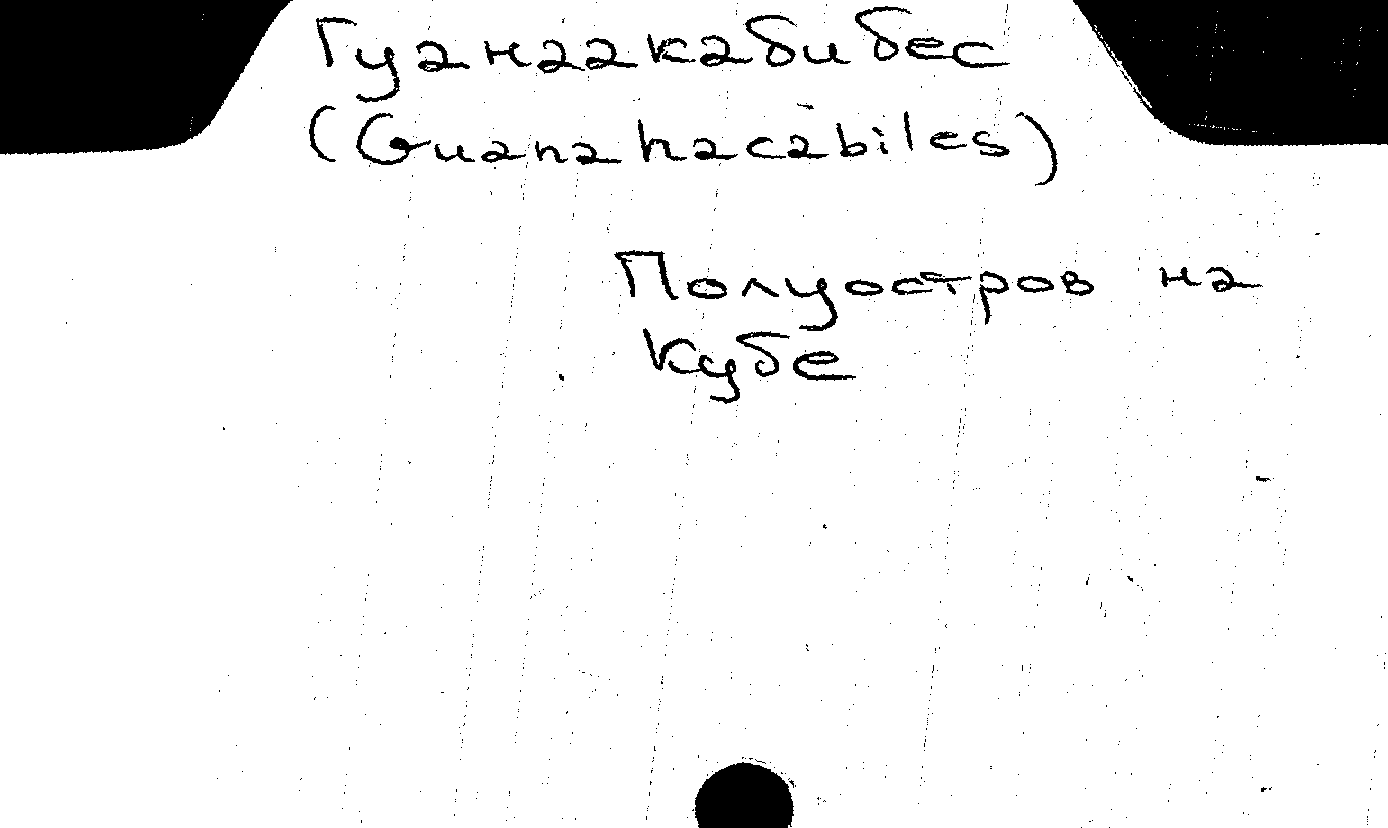 Гуанаакабибес
(Guanahacabiles)
Полуостров на
Кубе